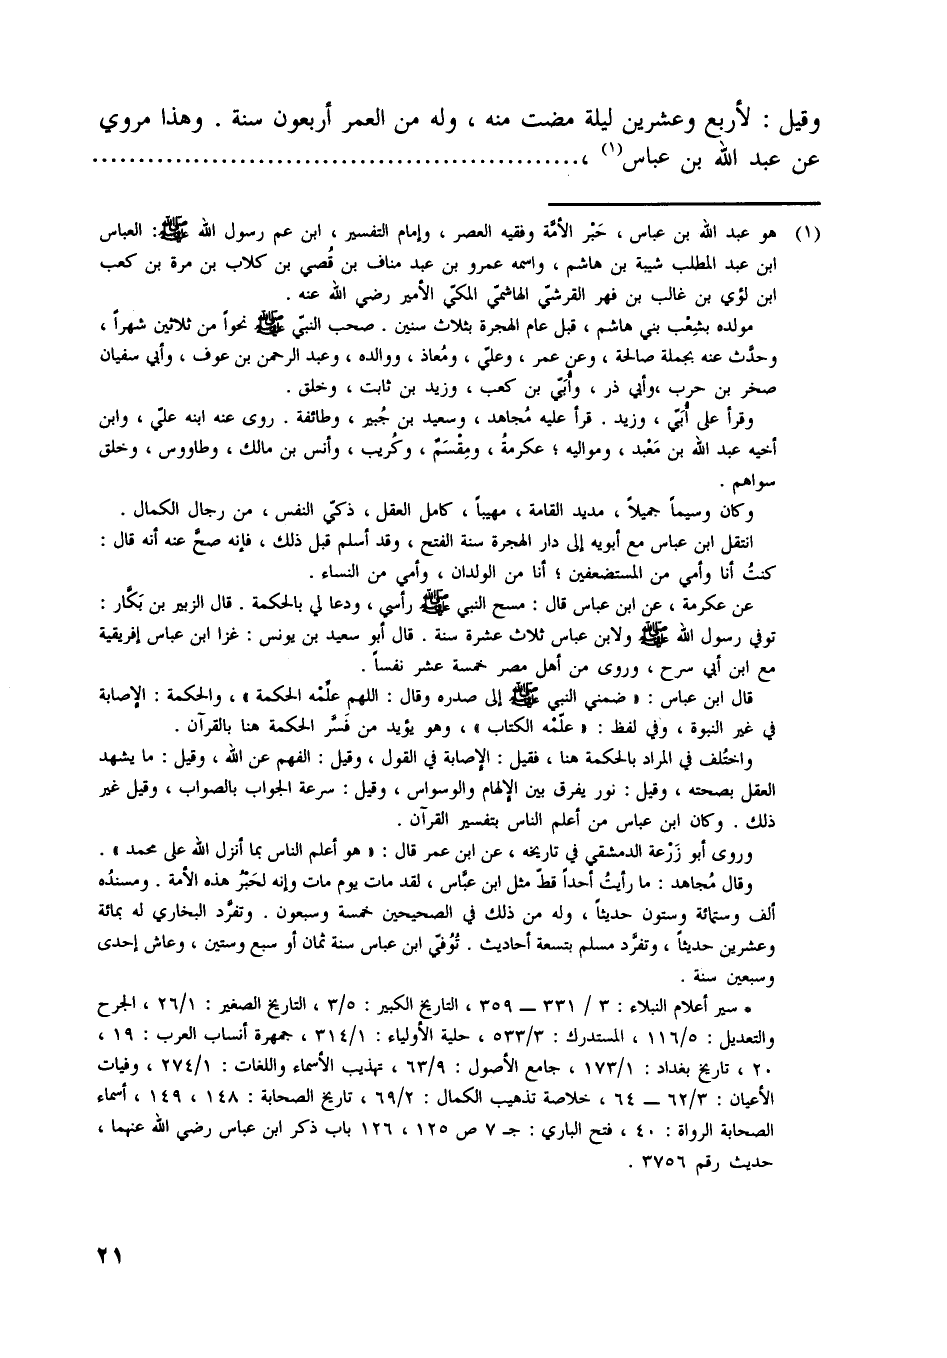 وقيل : لأربع وعشرين ليلة مضت منه ، وله من العمر أربعون سنة . وهذا مروي
عن عبد الله بن عباس(١) ،..................................................
(١) هو عبد الله بن عباس ، حَبْر الأمَّة وفقيه العصر ، وإمام التفسير ، ابن عم رسول الله ﷺ: العباس
ابن عبد المطلب شيبة بن هاشم ، واسمه عمرو بن عبد مناف بن قُصي بن كلاب بن مرة بن كعب
ابن لؤي بن غالب بن فهر القرشيّ الهاشميّ المكيّ الأمير رضي الله عنه .
مولده بشِعْب بني هاشم ، قبل عام الهجرة بثلاث سنين . صحب النبيّ ﷺ نحواً من ثلاثين شهراً ،
وحدَّث عنه بجملة صالحة ، وعن عمر ، وعليّ ، ومُعاذ ، ووالده ، وعبد الرحمن بن عوف ، وأبي سفيان
صخر بن حرب ،وأبي ذر ، وأُبَيّ بن كعب ، وزيد بن ثابت ، وخلق .
وقرأ على أُبَيّ ، وزيد . قرأ عليه مُجاهد ، وسعيد بن جُبير ، وطائفة . روى عنه ابنه عليّ ، وابن
أخيه عبد الله بن مَعْبد ، ومواليه ؛ عكرمةُ ، ومِقْسَمٌ ، وكُريب ، وأنس بن مالك ، وطاووس ، وخلق
سواهم .
وكان وسيماً جميلاً ، مديد القامة ، مهيباً ، كامل العقل ، ذكيّ النفس ، من رجال الكمال .
انتقل ابن عباس مع أبويه إلى دار الهجرة سنة الفتح ، وقد أسلم قبل ذلك ، فإنه صحَّ عنه أنه قال :
كنتُ أنا وأمي من المستضعفين ؛ أنا من الولدان ، وأمي من النساء .
عن عكرمة ، عن ابن عباس قال : مسح النبي ﷺ رأسي ، ودعا لي بالحكمة . قال الزبير بن بَكَّار :
توفي رسول الله ﷺ ولابن عباس ثلاث عشرة سنة . قال أبو سعيد بن يونس : غزا ابن عباس إفريقية
مع ابن أبي سرح ، وروى من أهل مصر خمسة عشر نفساً .
قال ابن عباس : « ضمني النبي ﷺ إلى صدره وقال : اللهم علِّمْه الحكمة » ، والحكمة : الإصابة
في غير النبوة ، وفي لفظ : « علّمْه الكتاب » ، وهو يؤيد من فَسَّر الحكمة هنا بالقرآن .
واختُلف في المراد بالحكمة هنا ، فقيل : الإصابة في القول ، وقيل : الفهم عن الله ، وقيل : ما يشهد
العقل بصحته ، وقيل : نور يفرق بين الإلهام والوسواس ، وقيل : سرعة الجواب بالصواب ، وقيل غير
ذلك . وكان ابن عباس من أعلم الناس بتفسير القرآن .
وروى أبو زَرْعة الدمشقي في تاريخه ، عن ابن عمر قال : « هو أعلم الناس بما أنزل الله على محمد » .
وقال مُجاهد : ما رأيتُ أحداً قطّ مثل ابن عبَّاس ، لقد مات يوم مات وإنه لحَبْرُ هذه الأمة . ومسندُه
ألف وستمائة وستون حديثاً ، وله من ذلك في الصحيحين خمسة وسبعون . وتفرَّد البخاري له بمائة
وعشرين حديثاً ، وتفرَّد مسلم بتسعة أحاديث . تُوُفيّ ابن عباس سنة ثمان أو سبع وستين ، وعاش إحدى
وسبعين سنة .
• سير أعلام النبلاء : ٣ / ٣٣١ ــ ٣٥٩ ، التاريخ الكبير : ٣/٥ ، التاريخ الصغير : ٢٦/١ ، الجرح
والتعديل : ١١٦/٥ ، المستدرك : ٥٣٣/٣ ، حلية الأولياء : ٣١٤/١ ، جمهرة أنساب العرب : ١٩ ،
٢٠ ، تاريخ بغداد : ١٧٣/١ ، جامع الأصول : ٦٣/٩ ، تهذيب الأسماء واللغات : ٢٧٤/١ ، وفيات
الأعيان : ٦٢/٣ ــ ٦٤ ، خلاصة تذهيب الكمال : ٦٩/٢ ، تاريخ الصحابة : ١٤٨ ، ١٤٩ ، أسماء
الصحابة الرواة : ٤٠ ، فتح الباري : جـ ٧ ص ١٢٥ ، ١٢٦ باب ذكر ابن عباس رضي الله عنهما ،
حديث رقم ٣٧٥٦ .
٢١